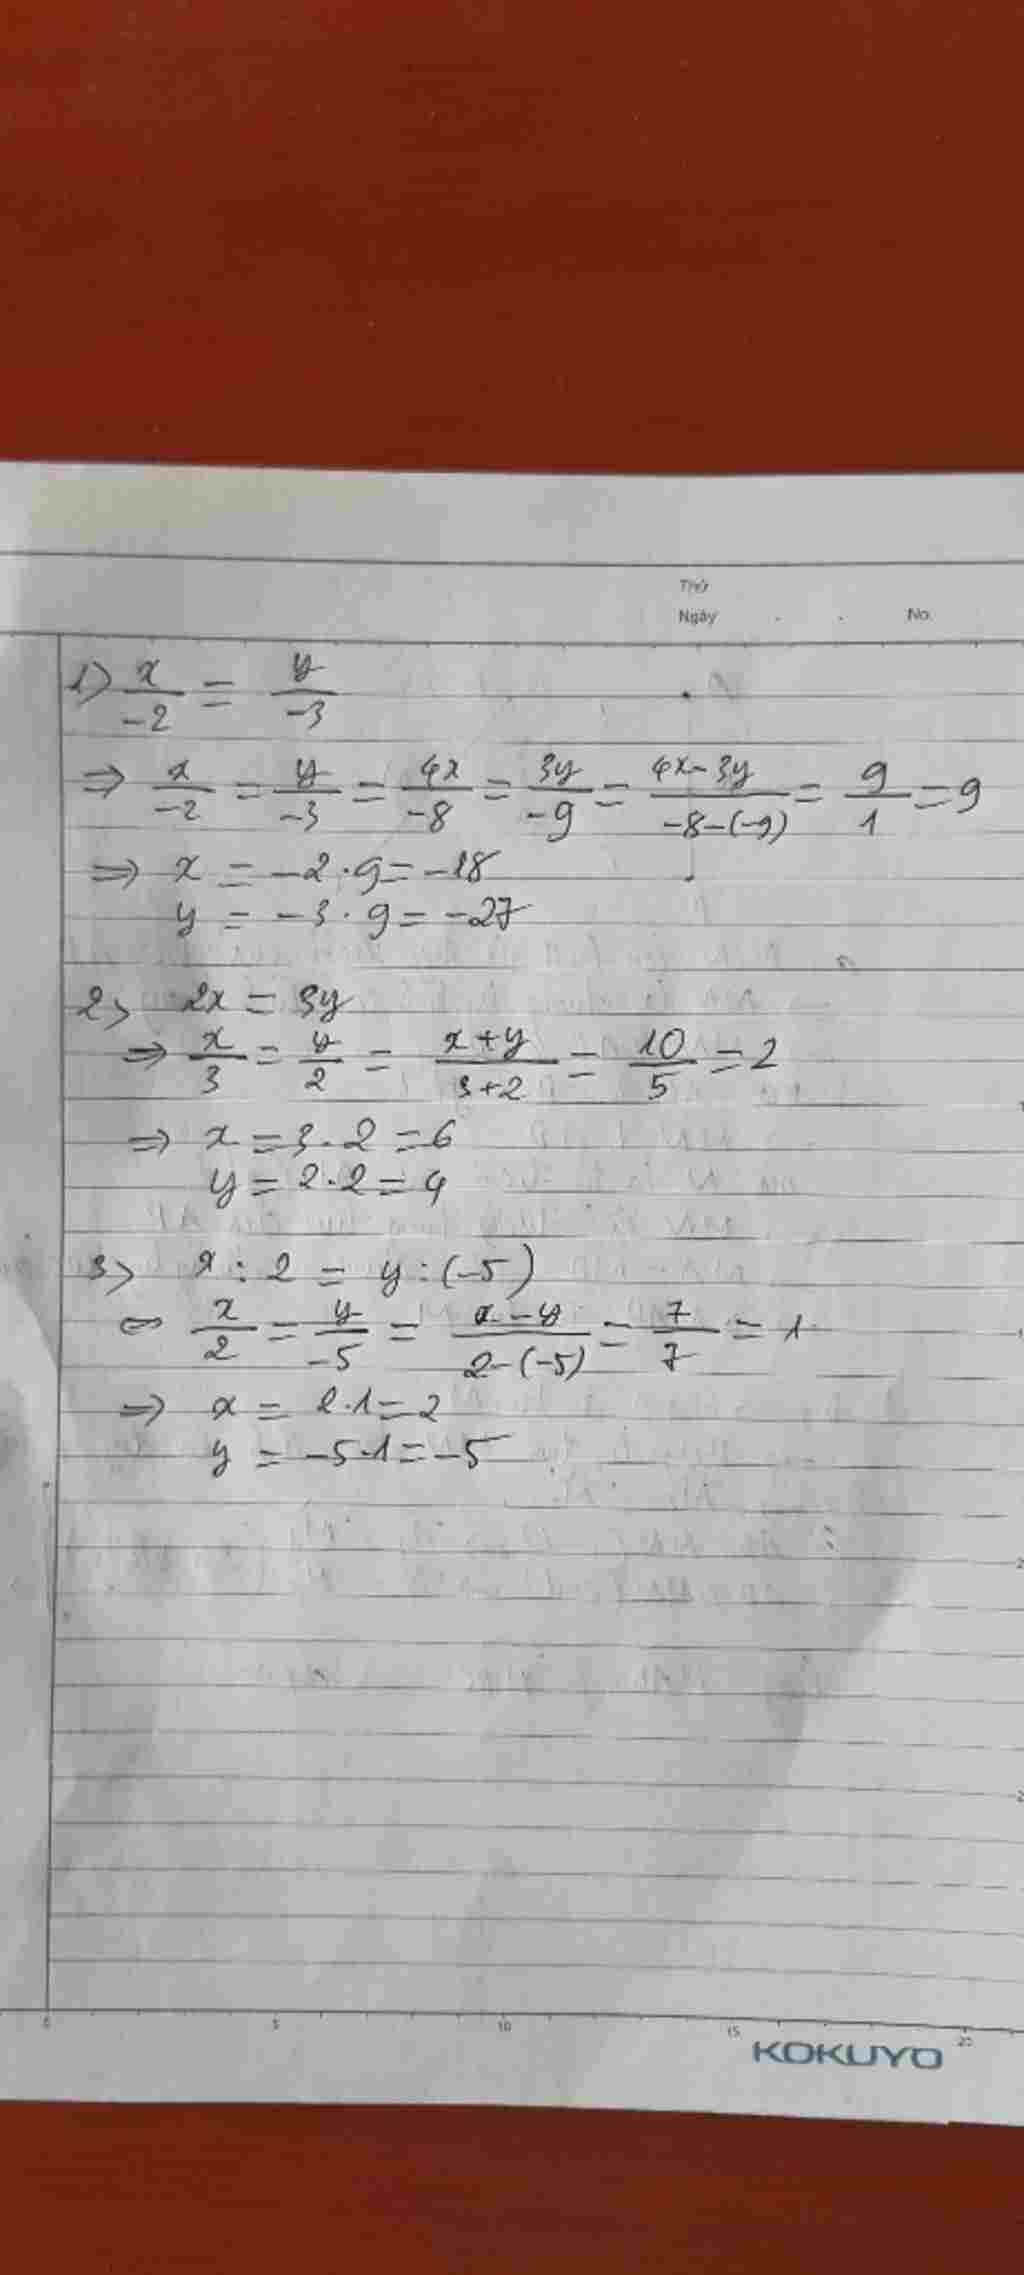 Thứ
Ngày . . No.
1) x/-2 = y/-3
⇒ x/-2 = y/-3 = 4x/-8 = 3y/-9 = 4x-3y/-8-(-9) = 9/1 = 9
⇒ x = -2 . 9 = -18
y = -3 . 9 = -27
2) 2x = 3y
⇒ x/3 = y/2 = x+y/3+2 = 10/5 = 2
⇒ x = 3 . 2 = 6
y = 2 . 2 = 4
3) x : 2 = y : (-5)
⇔ x/2 = y/-5 = x-y/2-(-5) = 7/7 = 1
⇒ x = 2 . 1 = 2
y = -5 . 1 = -5
0 5 10 15 20
KOKUYO